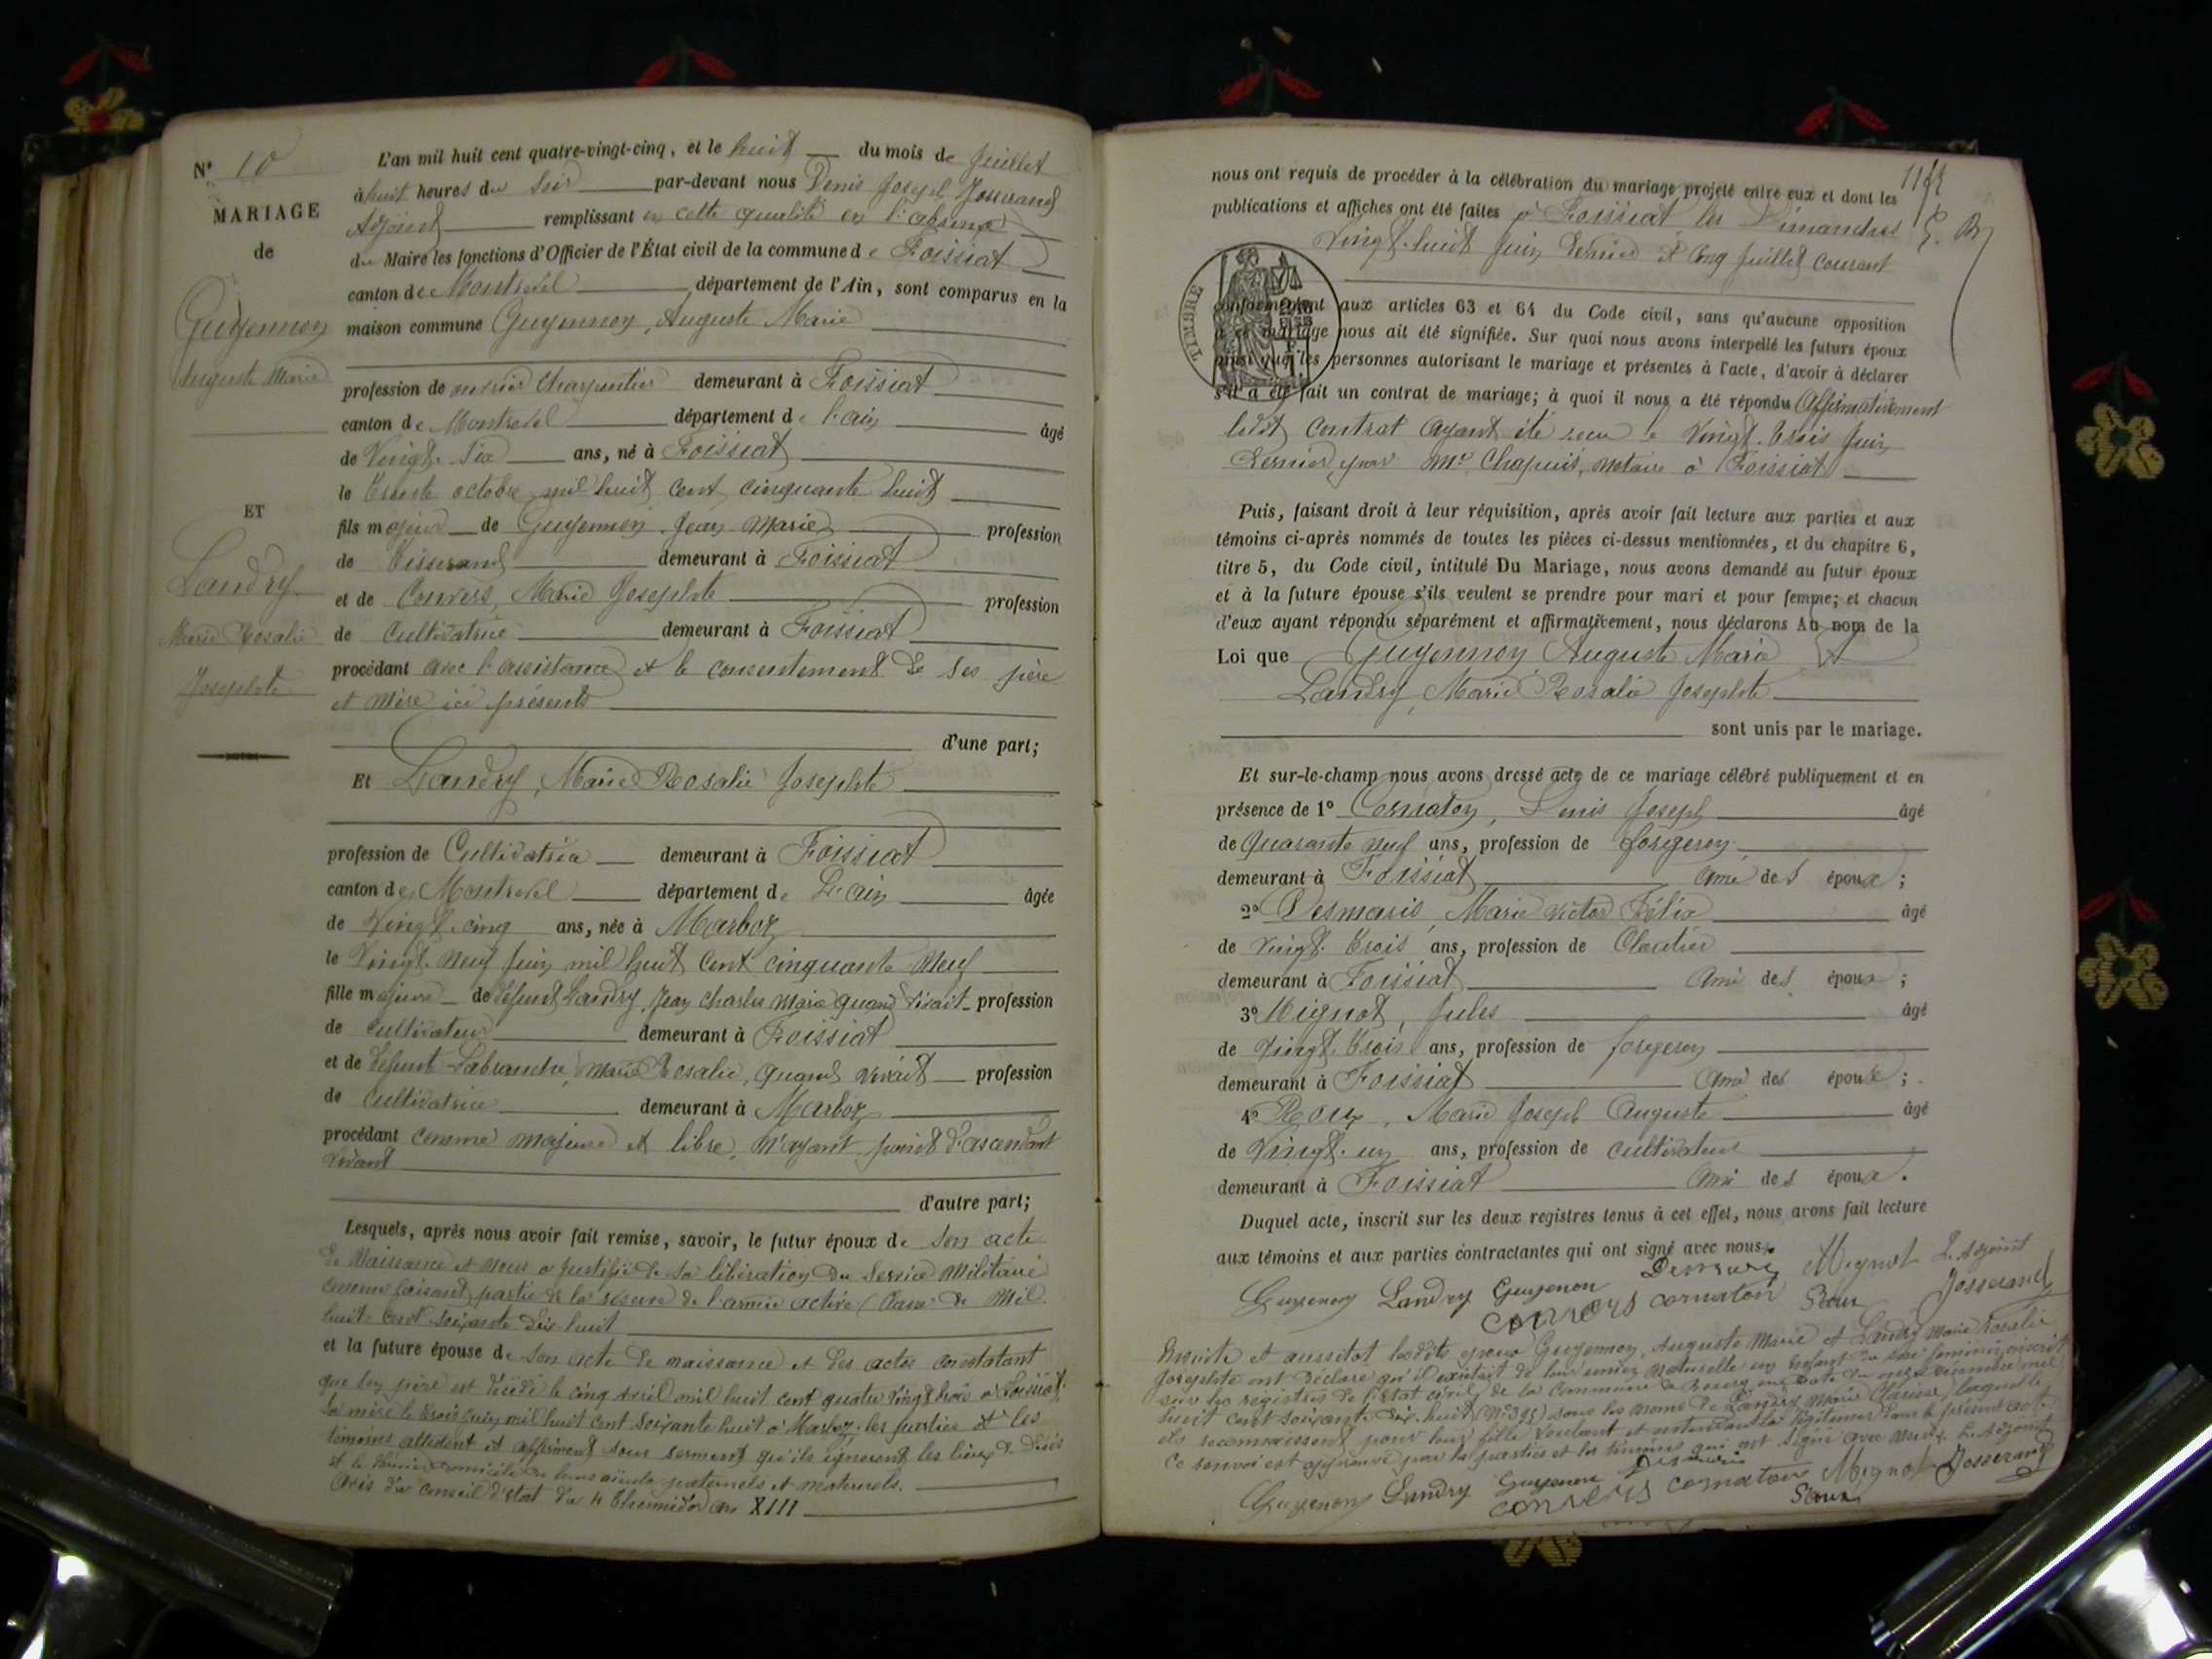 N° 10
MARIAGE
de
Guyennon
Auguste Marie
ET
Landry
Marie Rosalie
Josephte
L'an mil huit cent quatre-vingt-cinq, et le huit du mois de Juillet
à huit heures du Soir par-devant nous Denis Joseph Josserand
Adjoint remplissant en cette qualité en l'absence
du Maire les fonctions d'Officier de l'État civil de la commune de Foissiat
canton de Montrevel département de l'Ain, sont comparus en la
maison commune Guyennon, Auguste Marie
profession de ouvrier Charpentier demeurant à Foissiat
canton de Montrevel département de l'ain âgé
de Vingt-Six ans, né à Foissiat
le trente octobre mil huit cent cinquante huit
fils majeur de Guyennon Jean Marie profession
de tisserand demeurant à Foissiat
et de Convers, Marie Josephte profession
de Cultivatrice demeurant à Foissiat
procédant avec l'assistance et le consentement de ses père
et mère ici présents
d'une part;
Et Landry, Marie Rosalie Josephte
profession de Cultivatrice demeurant à Foissiat
canton de Montrevel département de L'ain âgée
de Vingt-cinq ans, née à Marboz
le Vingt-neuf Juin mil huit cent cinquante neuf
fille majeure de défunt Landry, Jean Charles Marie quand vivait profession
de cultivateur demeurant à Foissiat
et de défunte Labranche, Marie Rosalie, quand vivait profession
de Cultivatrice demeurant à Marboz
procédant comme majeure et libre, n'ayant point d'ascendant
vivant
d'autre part;
Lesquels, après nous avoir fait remise, savoir, le futur époux de Son acte
de Naissance et nous a justifié de sa libération du Service Militaire
comme faisant partie de la réserve de l'armée active (Classe de Mil
huit cent soixante dix-huit
et la future épouse de Son acte de naissance et des actes constatant
que son père est décédé le cinq avril mil huit cent quatre vingt trois à Foissiat
sa mère le trois Juin mil huit cent soixante huit à Marboz, les parties et les
témoins attestent et affirment sous serment qu'ils ignorent les lieux de décès
et le dernier domicile de leurs aïeuls paternels et maternels.
Avis du Conseil d'état du 4 thermidor an XIII
nous ont requis de procéder à la célébration du mariage projeté entre eux et dont les
publications et affiches ont été faites à Foissiat les Dimanches
Vingt-huit Juin dernier et Cinq Juillet courant
TIMBRE
conformément aux articles 63 et 64 du Code civil, sans qu'aucune opposition
à ce mariage nous ait été signifiée. Sur quoi nous avons interpellé les futurs époux
ainsi que les personnes autorisant le mariage et présentes à l'acte, d'avoir à déclarer
s'il a été fait un contrat de mariage; à quoi il nous a été répondu Affirmativement
ledit Contrat ayant été reçu le Vingt-trois Juin
dernier, par Me Chapuis, notaire à Foissiat
Puis, faisant droit à leur réquisition, après avoir fait lecture aux parties et aux
témoins ci-après nommés de toutes les pièces ci-dessus mentionnées, et du chapitre 6,
titre 5, du Code civil, intitulé Du Mariage, nous avons demandé au futur époux
et à la future épouse s'ils veulent se prendre pour mari et pour femme; et chacun
d'eux ayant répondu séparément et affirmativement, nous déclarons Au nom de la
Loi que Guyennon, Auguste Marie Et
Landry, Marie Rosalie Josephte
sont unis par le mariage.
Et sur-le-champ nous avons dressé acte de ce mariage célébré publiquement et en
présence de 1° Cornaton, Denis Joseph âgé
de Quarante neuf ans, profession de forgeron
demeurant à Foissiat Ami des époux;
2° Desmaris, Marie Victor Félix âgé
de Vingt-trois ans, profession de
demeurant à Foissiat Ami des époux;
3° Mignot, Jules âgé
de Vingt-trois ans, profession de forgeron
demeurant à Foissiat Ami des époux;
4° Roux, Marie Joseph Auguste âgé
de Vingt-un ans, profession de cultivateur
demeurant à Foissiat Ami des époux.
Duquel acte, inscrit sur les deux registres tenus à cet effet, nous avons fait lecture
aux témoins et aux parties contractantes qui ont signé avec nous.
Mignot L'Adjoint
Guyenon Landry Guyenon convers cornaton Roux Josserand
Ensuite et aussitot lesdits epoux Guyennon, Auguste Marie et Landry Marie Rosalie
Josephte ont déclaré qu'il existait de leur union naturelle un enfant du sexe féminin inscrit
sur les registres de l'état civil de la Commune de Bourg en date du onze décembre mil
huit cent soixante dix-huit (N° 395) sous les noms de Landry Marie Clarisse, laquelle
ils reconnaissent pour leur fille voulant et entendant la légitimer dans le présent acte
Ce renvoi est approuvé par les parties et les témoins qui ont signé avec nous. L'Adjoint
Guyenon Landry Guyenon convers cornaton Mignot Josserand
Roux